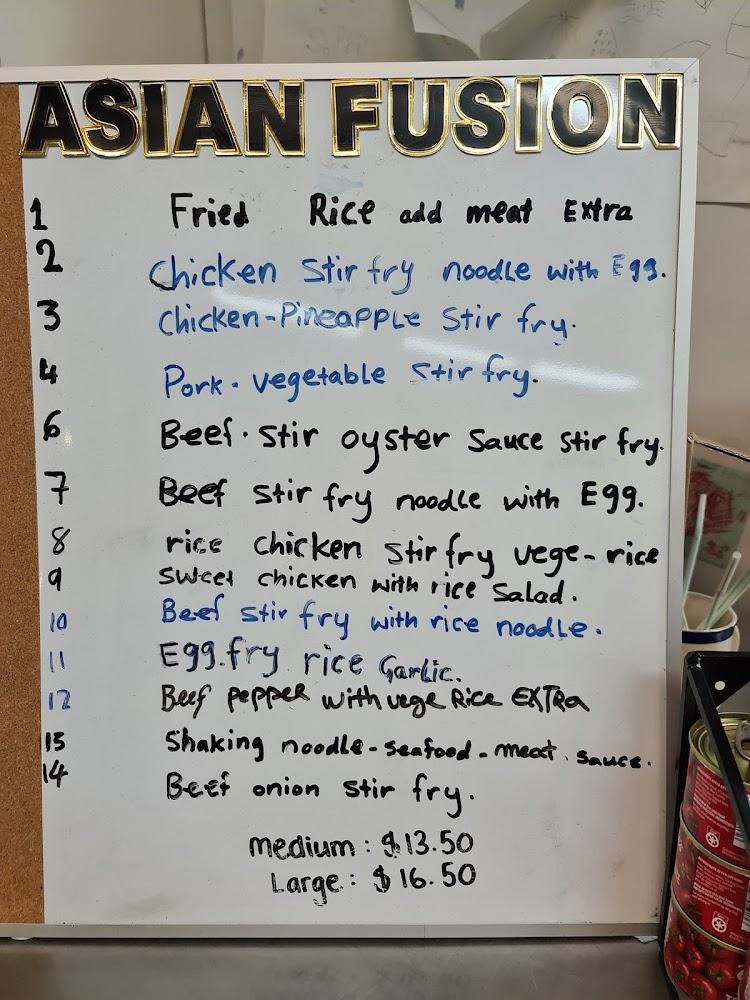 ASIAN FUSION
1 Fried Rice add meat Extra
2 Chicken Stir fry noodle with Egg.
3 Chicken-Pineapple Stir fry.
4 Pork. vegetable Stir fry.
6 Beef. Stir oyster Sauce stir fry.
7 Beef stir fry noodle with Egg.
8 rice chicken stir fry vege-rice
9 sweet chicken with rice Salad.
10 Beef stir fry with rice noodle.
11 Egg.fry rice Garlic.
12 Beef pepper with vege Rice EXTRa
15 Shaking noodle-seafood-meat. sauce.
14 Beef onion stir fry.
medium: $13.50
Large: $16.50